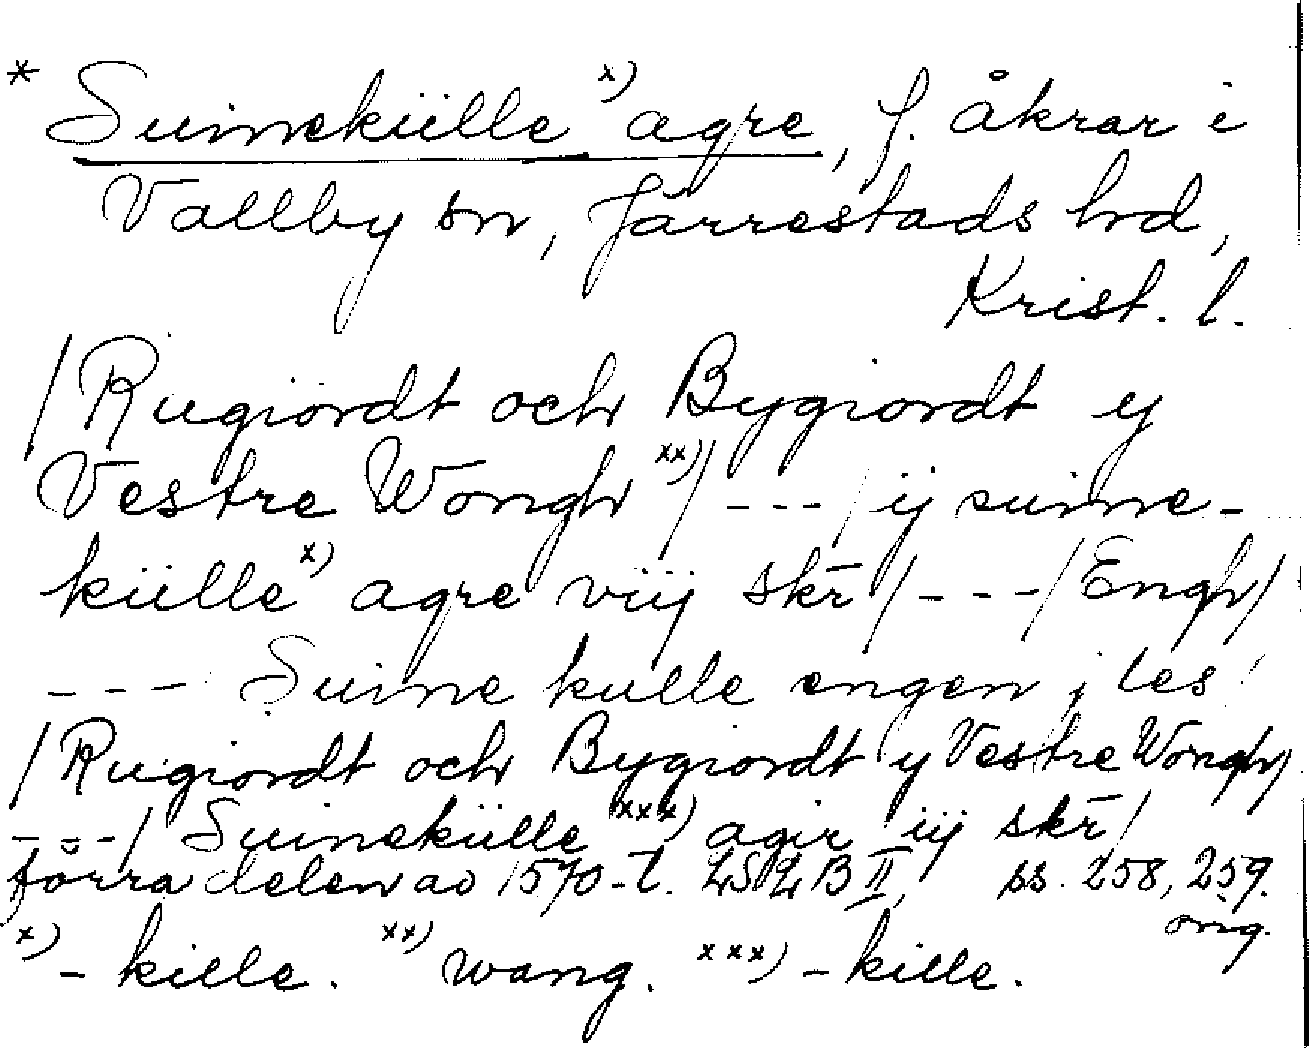 * Suinekülle x) agre, f. åkrar i
Vallby sn, Järrestads hd,
Krist. l.
/Rugiordt och Bygiordt y
Vestre Wongh xx)/ --- / ij suine-
külle x) agre viij skr̄ / --- / Engh /
--- Suine kulle engen ; tes
/Rugiordt och Bygiordt y Vestre Wongh/
--- / Suinekülle xxx) agir iij skr̄ /
förra delen av 1570-t. B II, ss. 258, 259.
orig.
x) - kille. xx) wang. xxx) - kille.